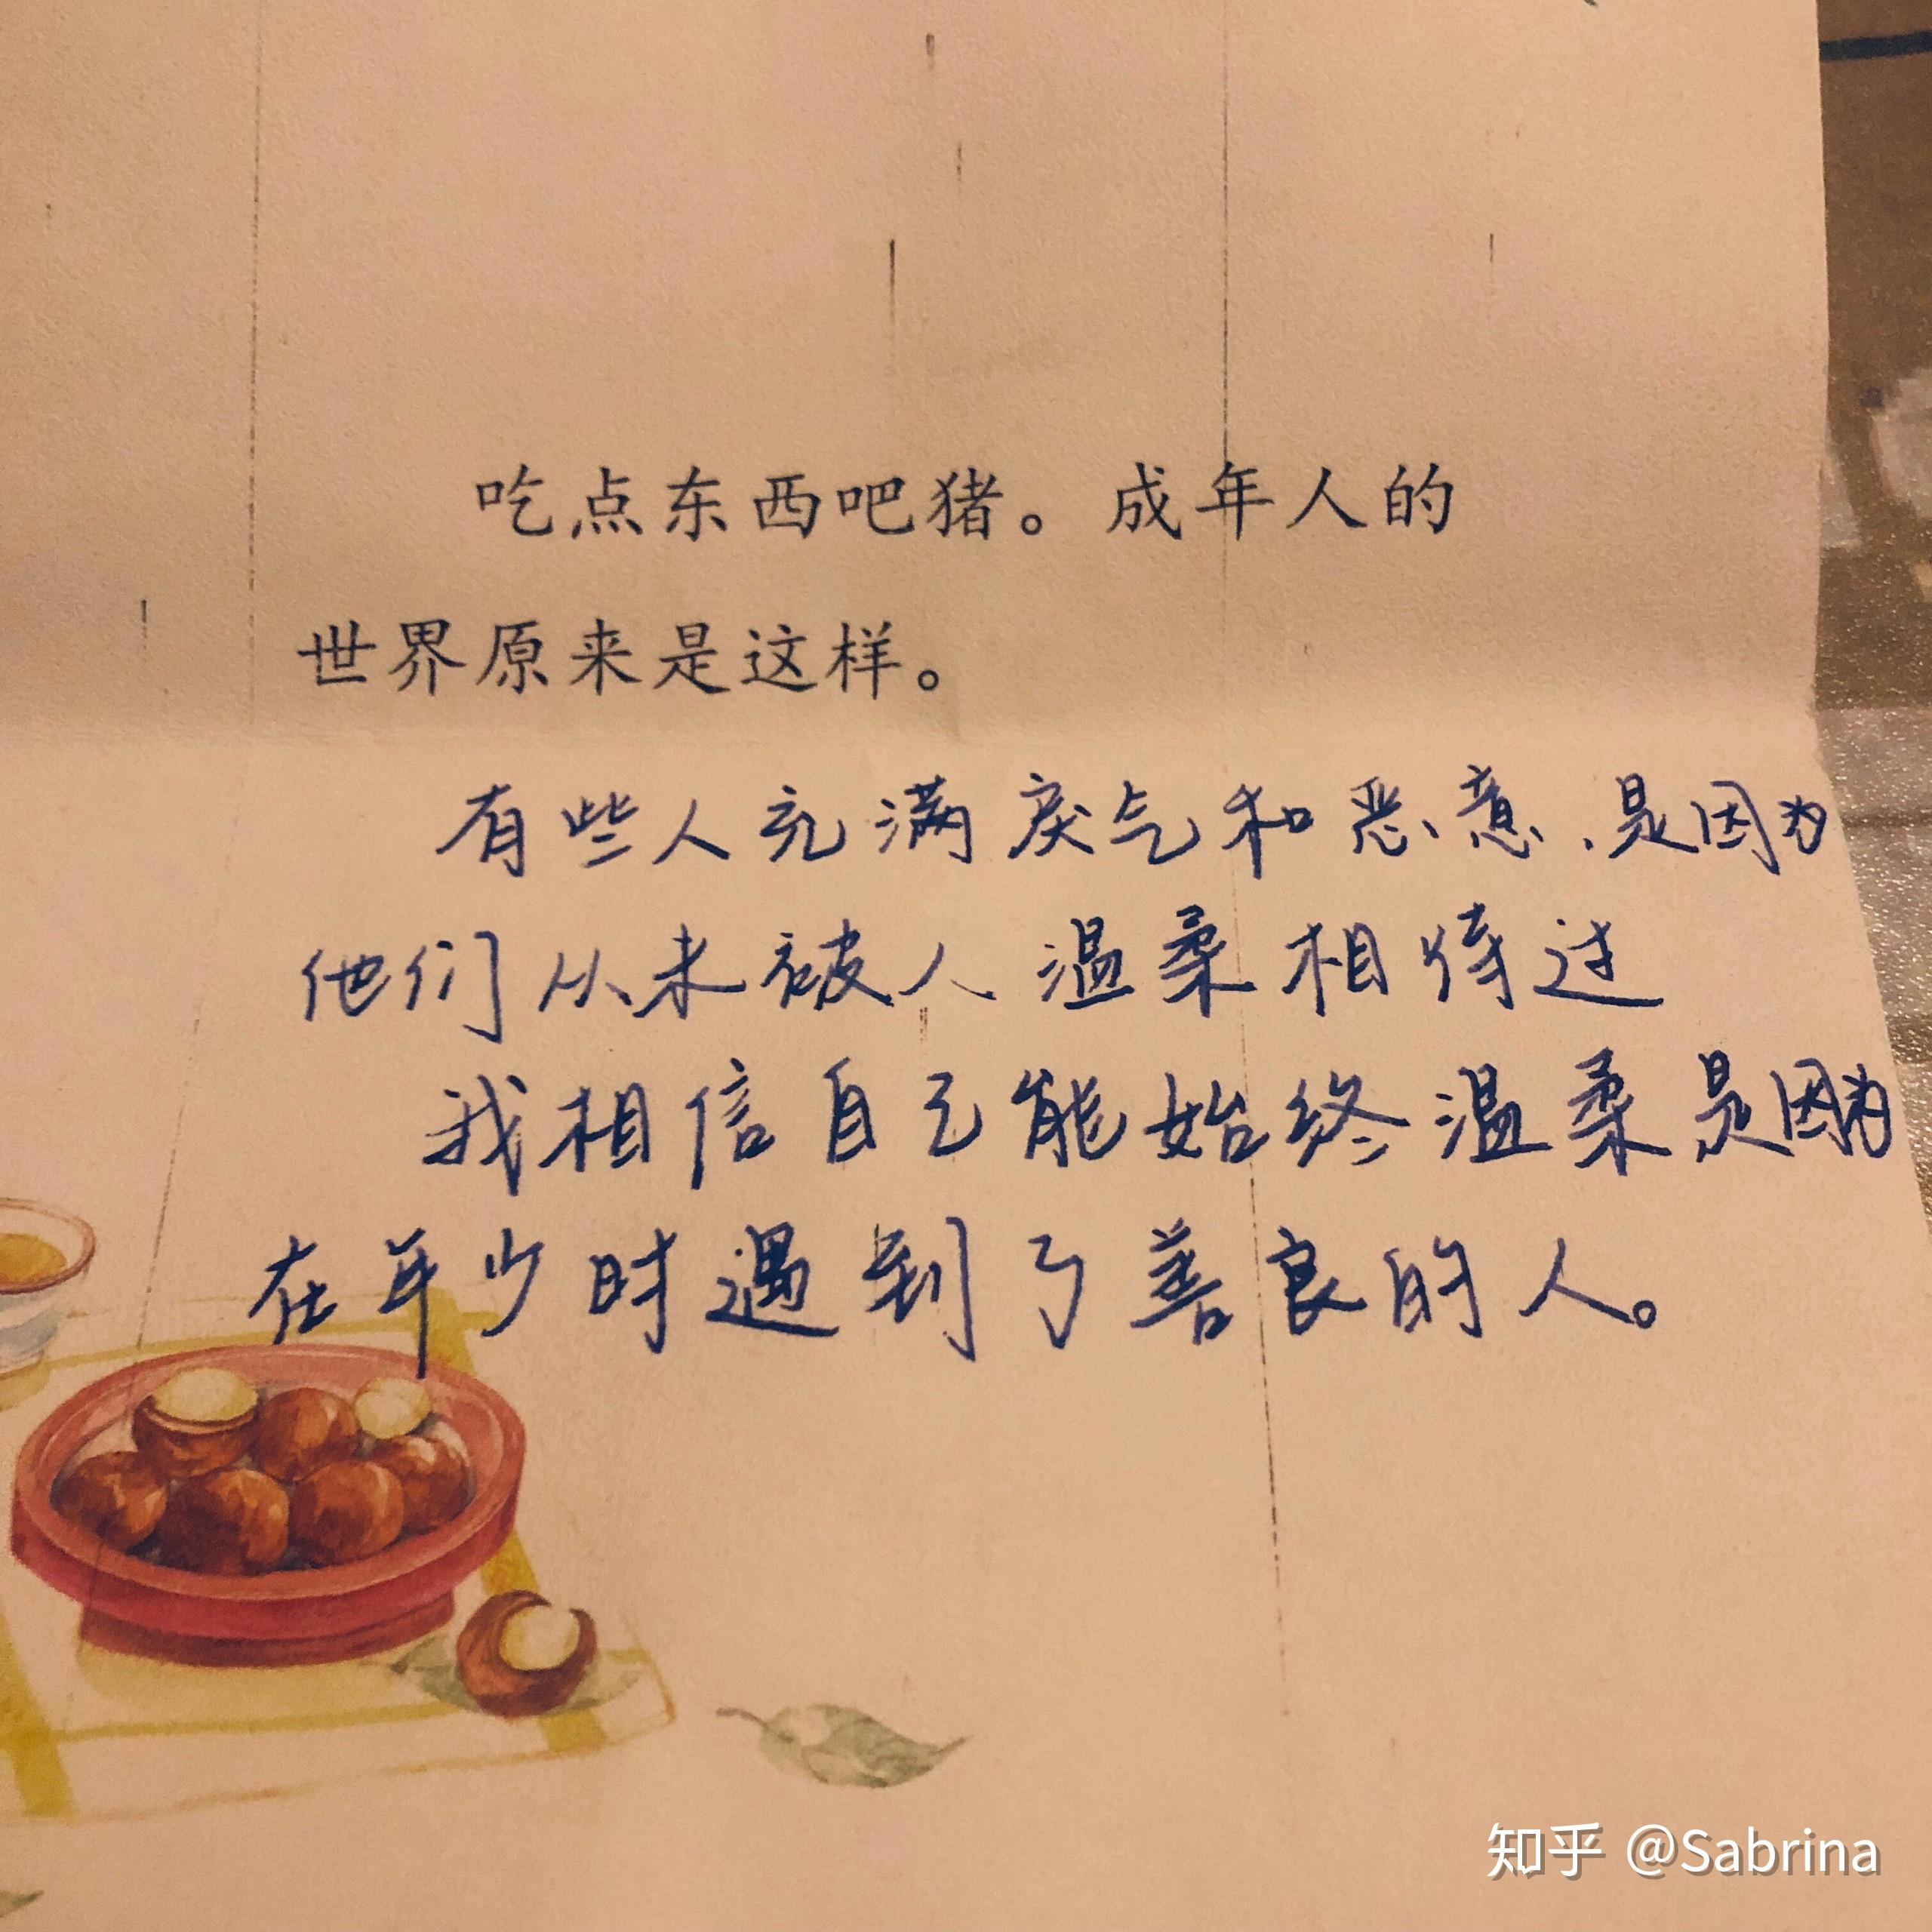 吃点东西吧猪。成年人的
世界原来是这样。
有些人充满戾气和恶意，是因为
他们从未被人温柔相待过
我相信自己能始终温柔是因为
在年少时遇到了善良的人。
知乎 @Sabrina